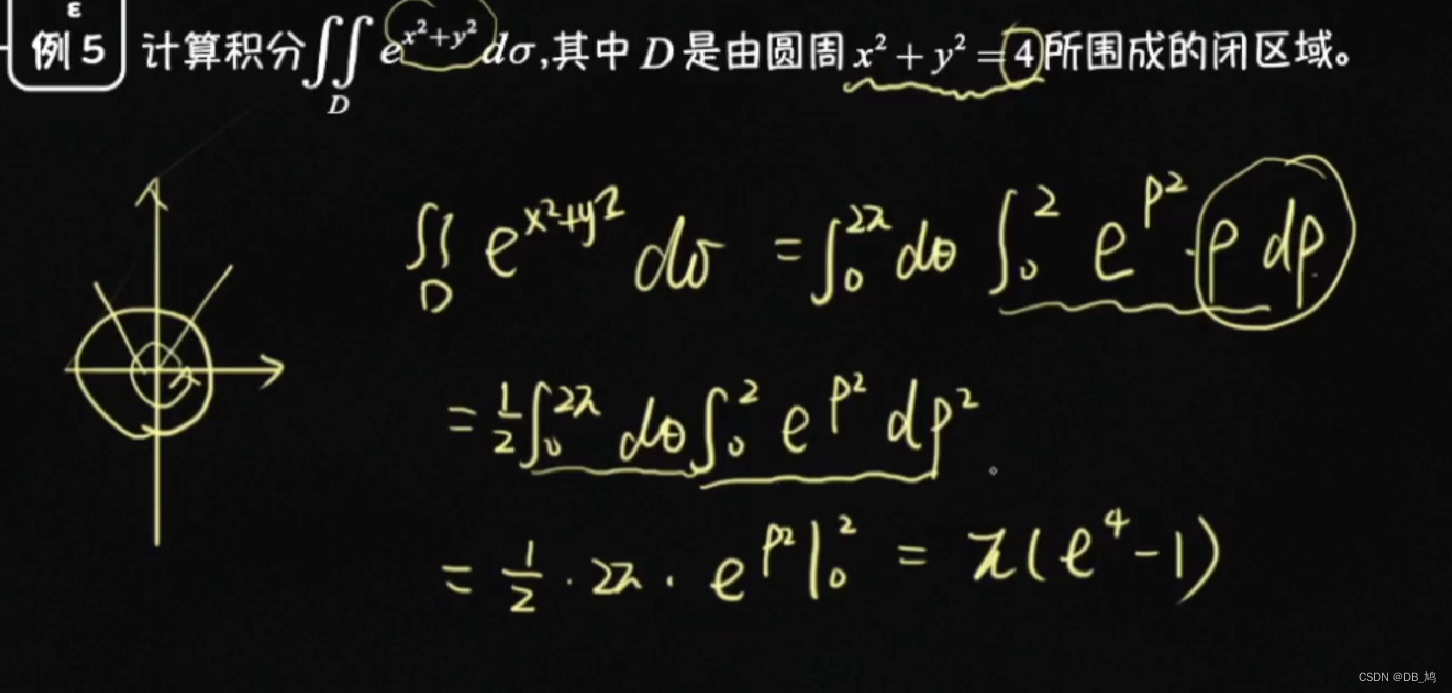 ε
例5 计算积分∬_D e^{x²+y²}dσ,其中 D 是由圆周 x² + y² = 4所围成的闭区域。
∬_D e^{x²+y²} dσ = ∫₀^{2π} dθ ∫₀² e^{ρ²}·ρ dρ
= 1/2 ∫₀^{2π} dθ ∫₀² e^{ρ²} dρ²
= 1/2 · 2π · e^{ρ²}|₀² = π(e⁴-1)
CSDN @DB_鸠